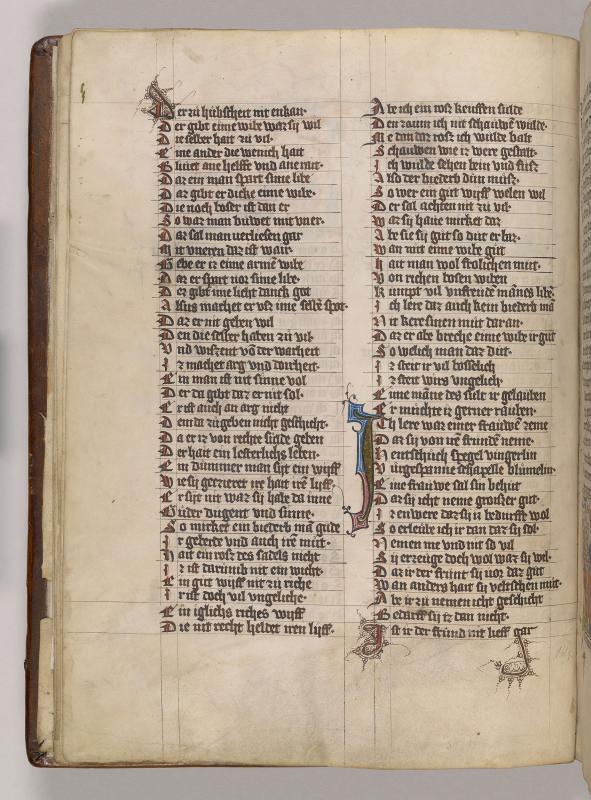 Der zu hubscheit nit enkan·
Der gibt eime wibe waz sy wil
Die selber hait zu vil·
Eine ander die wenich hait
Blibet ane helffe vnd ane rait·
Daz ein man spart sime libe
Daz gibt er dicke eime wibe·
Die noch boser ist dan er
So waz man buwet mit vner·
Daz sal man uerliesen gar
Mit vneren daz ist wair·
Gebe er iz eime armē wibe
Daz er spart uor sime libe·
Der gibt ime licht danck got
Alsus machet er vsz ime selbē spot·
Daz er nit geben wil
Den die selber haben zu vil·
Vnd wiszent vō der warheit
Ir machet arg vnd doirheit·
Ein man ist nit sinne vol
Der da gibt daz er nit sol·
Er ist auch an arg nicht
Dem da zu geben nicht geschicht·
Da er iz von rechte sulde geben
Der hait ein lesterlichs leben·
Ein dummer man siht ein wijff
Wie sij gezieret ire hait irē lijff·
Er siht nit waz sij habe da inne
Guder dugent vnd sinne·
So mircket ein biederb mā gude
Ir geberde vnd auch irē mut·
Hait ein rosz des sadels nicht
Iz ist darumb nit ein wicht·
Ein gut wijff nit zu riche
Iz ist doch vil vngeliche·
Ein iglichs riches wijff
Die nit recht heldet iren lijff·
Abe ich ein rosz keuffen sulde
Den zoum ich nit schauwen wulde·
Me dan daz rosz ich wulde balt
Schauwen wie iz were gestalt·
Ich wulde sehen bein vnd fusz
Also der biederb dun musz·
So wer ein gut wijff welen wil
Der sal achten nit zu vil·
Waz sij haue mircket daz
Abe sie sij gut so dut er baz·
Wan mit eime wibe gut
Hait man wol frolichen mut·
Von richen bosen wiben
Kumpt vil vnfreude mānes libe·
Ich lere daz auch kein biederb mā
Nit kere sinen mut daran·
Daz er abe breche eime wibe ir gut
So welich man daz dut·
Iz steit ir vil boszlich
Iz steit wirs vngelich·
Eime māne des sult ir gelauben
Er muchte iz gerner rauben·
Ich lere waz einer frauwē zeme
Daz sij von irē frundē neme·
Hentschuch spegel vingerlin
Vurgespanne schapelle blumelin·
Eine frauwe sal sin behut
Daz sij icht neme groiszer gut·
Iz enwere daz sij iz bedurffe wol
So erleube ich iz dan daz sij sol·
Nemen me vnd nit so vil
Sij erzeuge doch wol waz sij wil·
Daz ir der frunt sij uor daz gut
Wan anders hait sij veltschen mut·
Abe ir zu nemen icht geschicht
Bedarff sij iz dan nicht·
Ist ir der frund nit lieff gar